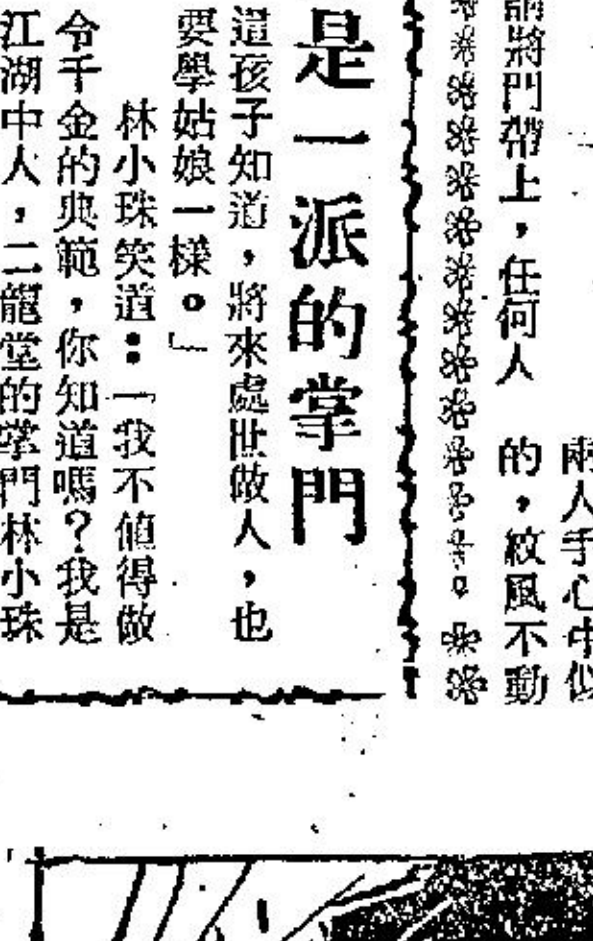 兩人手心中似
請將門帶上，任何人
的，紋風不動
是一派的掌門
這孩子知道，將來處世做人，也
要學姑娘一樣。」
林小珠笑道：「我不值得做
令千金的典範，你知道嗎？我是
江湖中人，二龍堂的掌門林小珠